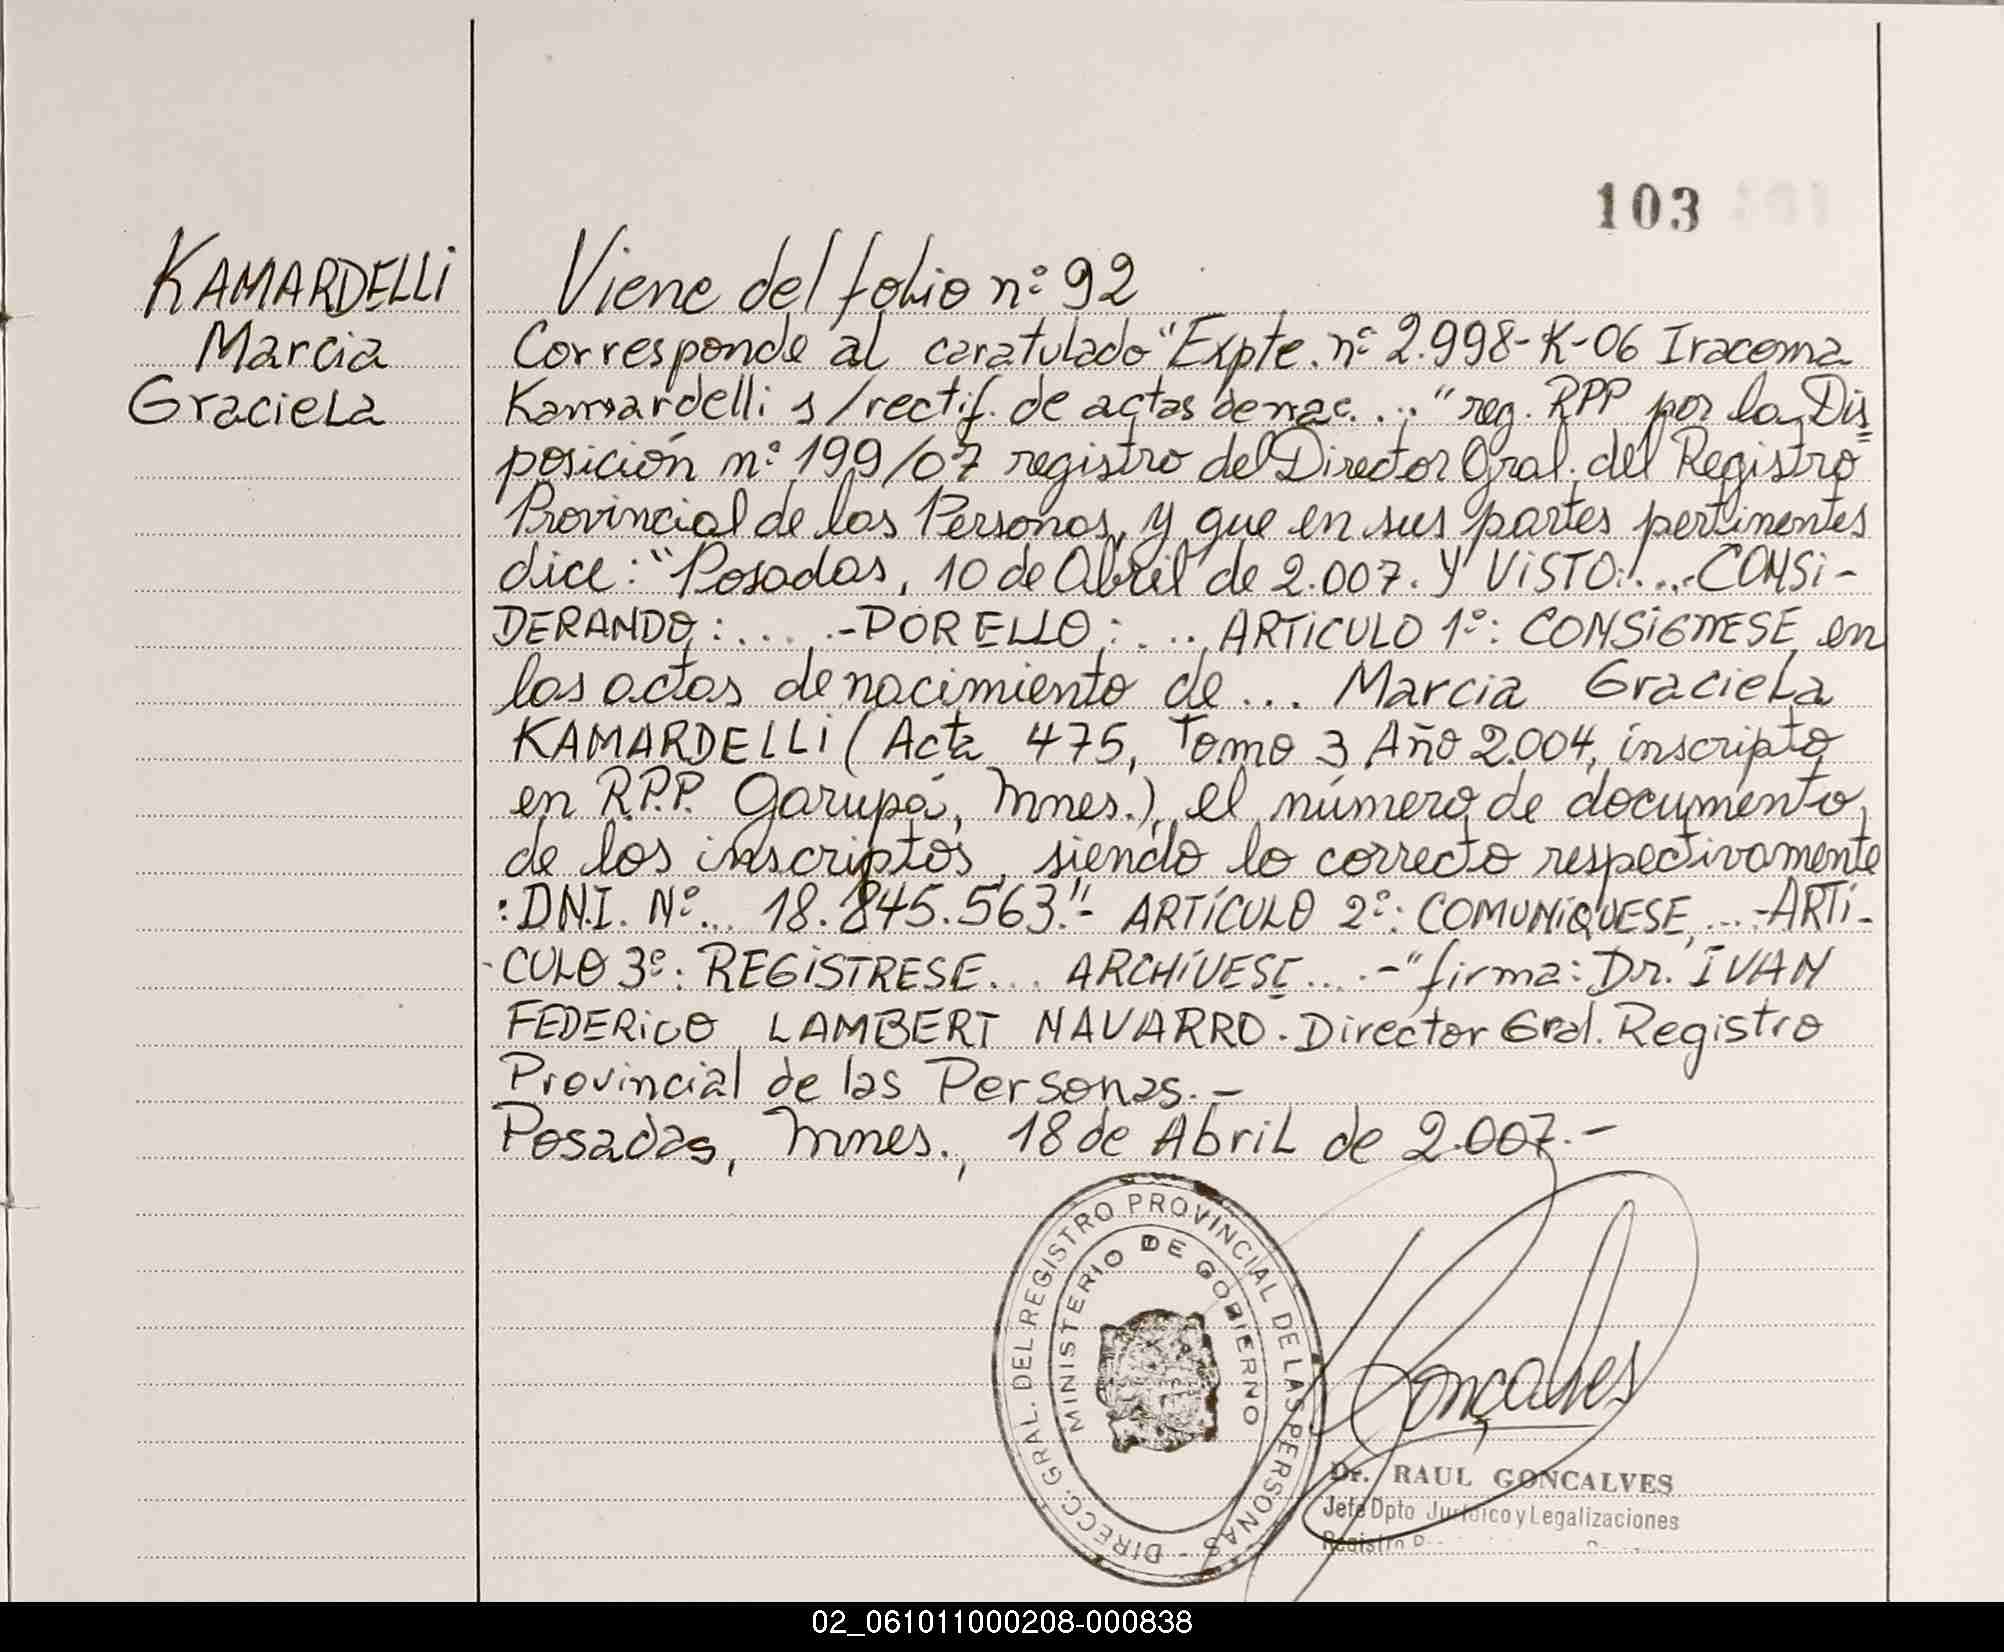 103
KAMARDELLI
Marcia
Graciela
Viene del folio n° 92
Corresponde al caratulado "Expte. n° 2.998-K-06 Iracema
Kamardelli s/rectif. de actas de nac. ..." reg. RPP por la Dis
posición n° 199/07 registro del Director Gral. del Registro
Provincial de las Personas, y que en sus partes pertinentes
dice: "Posadas, 10 de Abril de 2.007. Y VISTO:....CONSI-
DERANDO:.... .-POR ELLO:... ARTICULO 1°: CONSIGNESE en
las actas de nacimiento de... Marcia Graciela
KAMARDELLI (Acta 475, Tomo 3 Año 2.004, inscripto
en R.P.P. Garupá, Mnes.), el número de documento
de los inscriptos, siendo lo correcto respectivamente
: DN.I. N°... 18.845.563."- ARTÍCULO 2°: COMUNÍQUESE ...-ARTI-
CULO 3°: REGISTRESE... ARCHÍVESE ....-" firma: Dr. IVAN
FEDERICO LAMBERT NAVARRO. Director Gral. Registro
Provincial de las Personas.-
Posadas, Mnes., 18 de Abril de 2.007.-
DIRECC. GRAL. DEL REGISTRO PROVINCIAL DE LAS PERSONAS -
MINISTERIO DE GOBIERNO
Gonçalves
Dr. RAUL GONCALVES
Jefe Dpto Jurídico y Legalizaciones
Registro
02_061011000208-000838